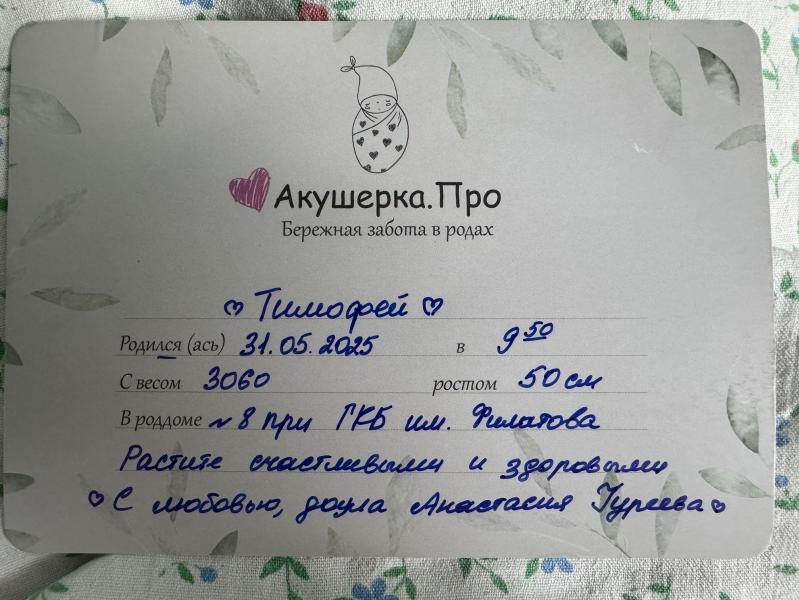 Акушерка.Про
Бережная забота в родах
♡ Тимофей ♡
Родился (ась) 31.05.2025 в 9 50
С весом 3060 ростом 50 см
В роддоме № 8 при ГКБ им. Филатова
Растите счастливыми и здоровыми
♡ С любовью, доула Анастасия Гуреева ♡